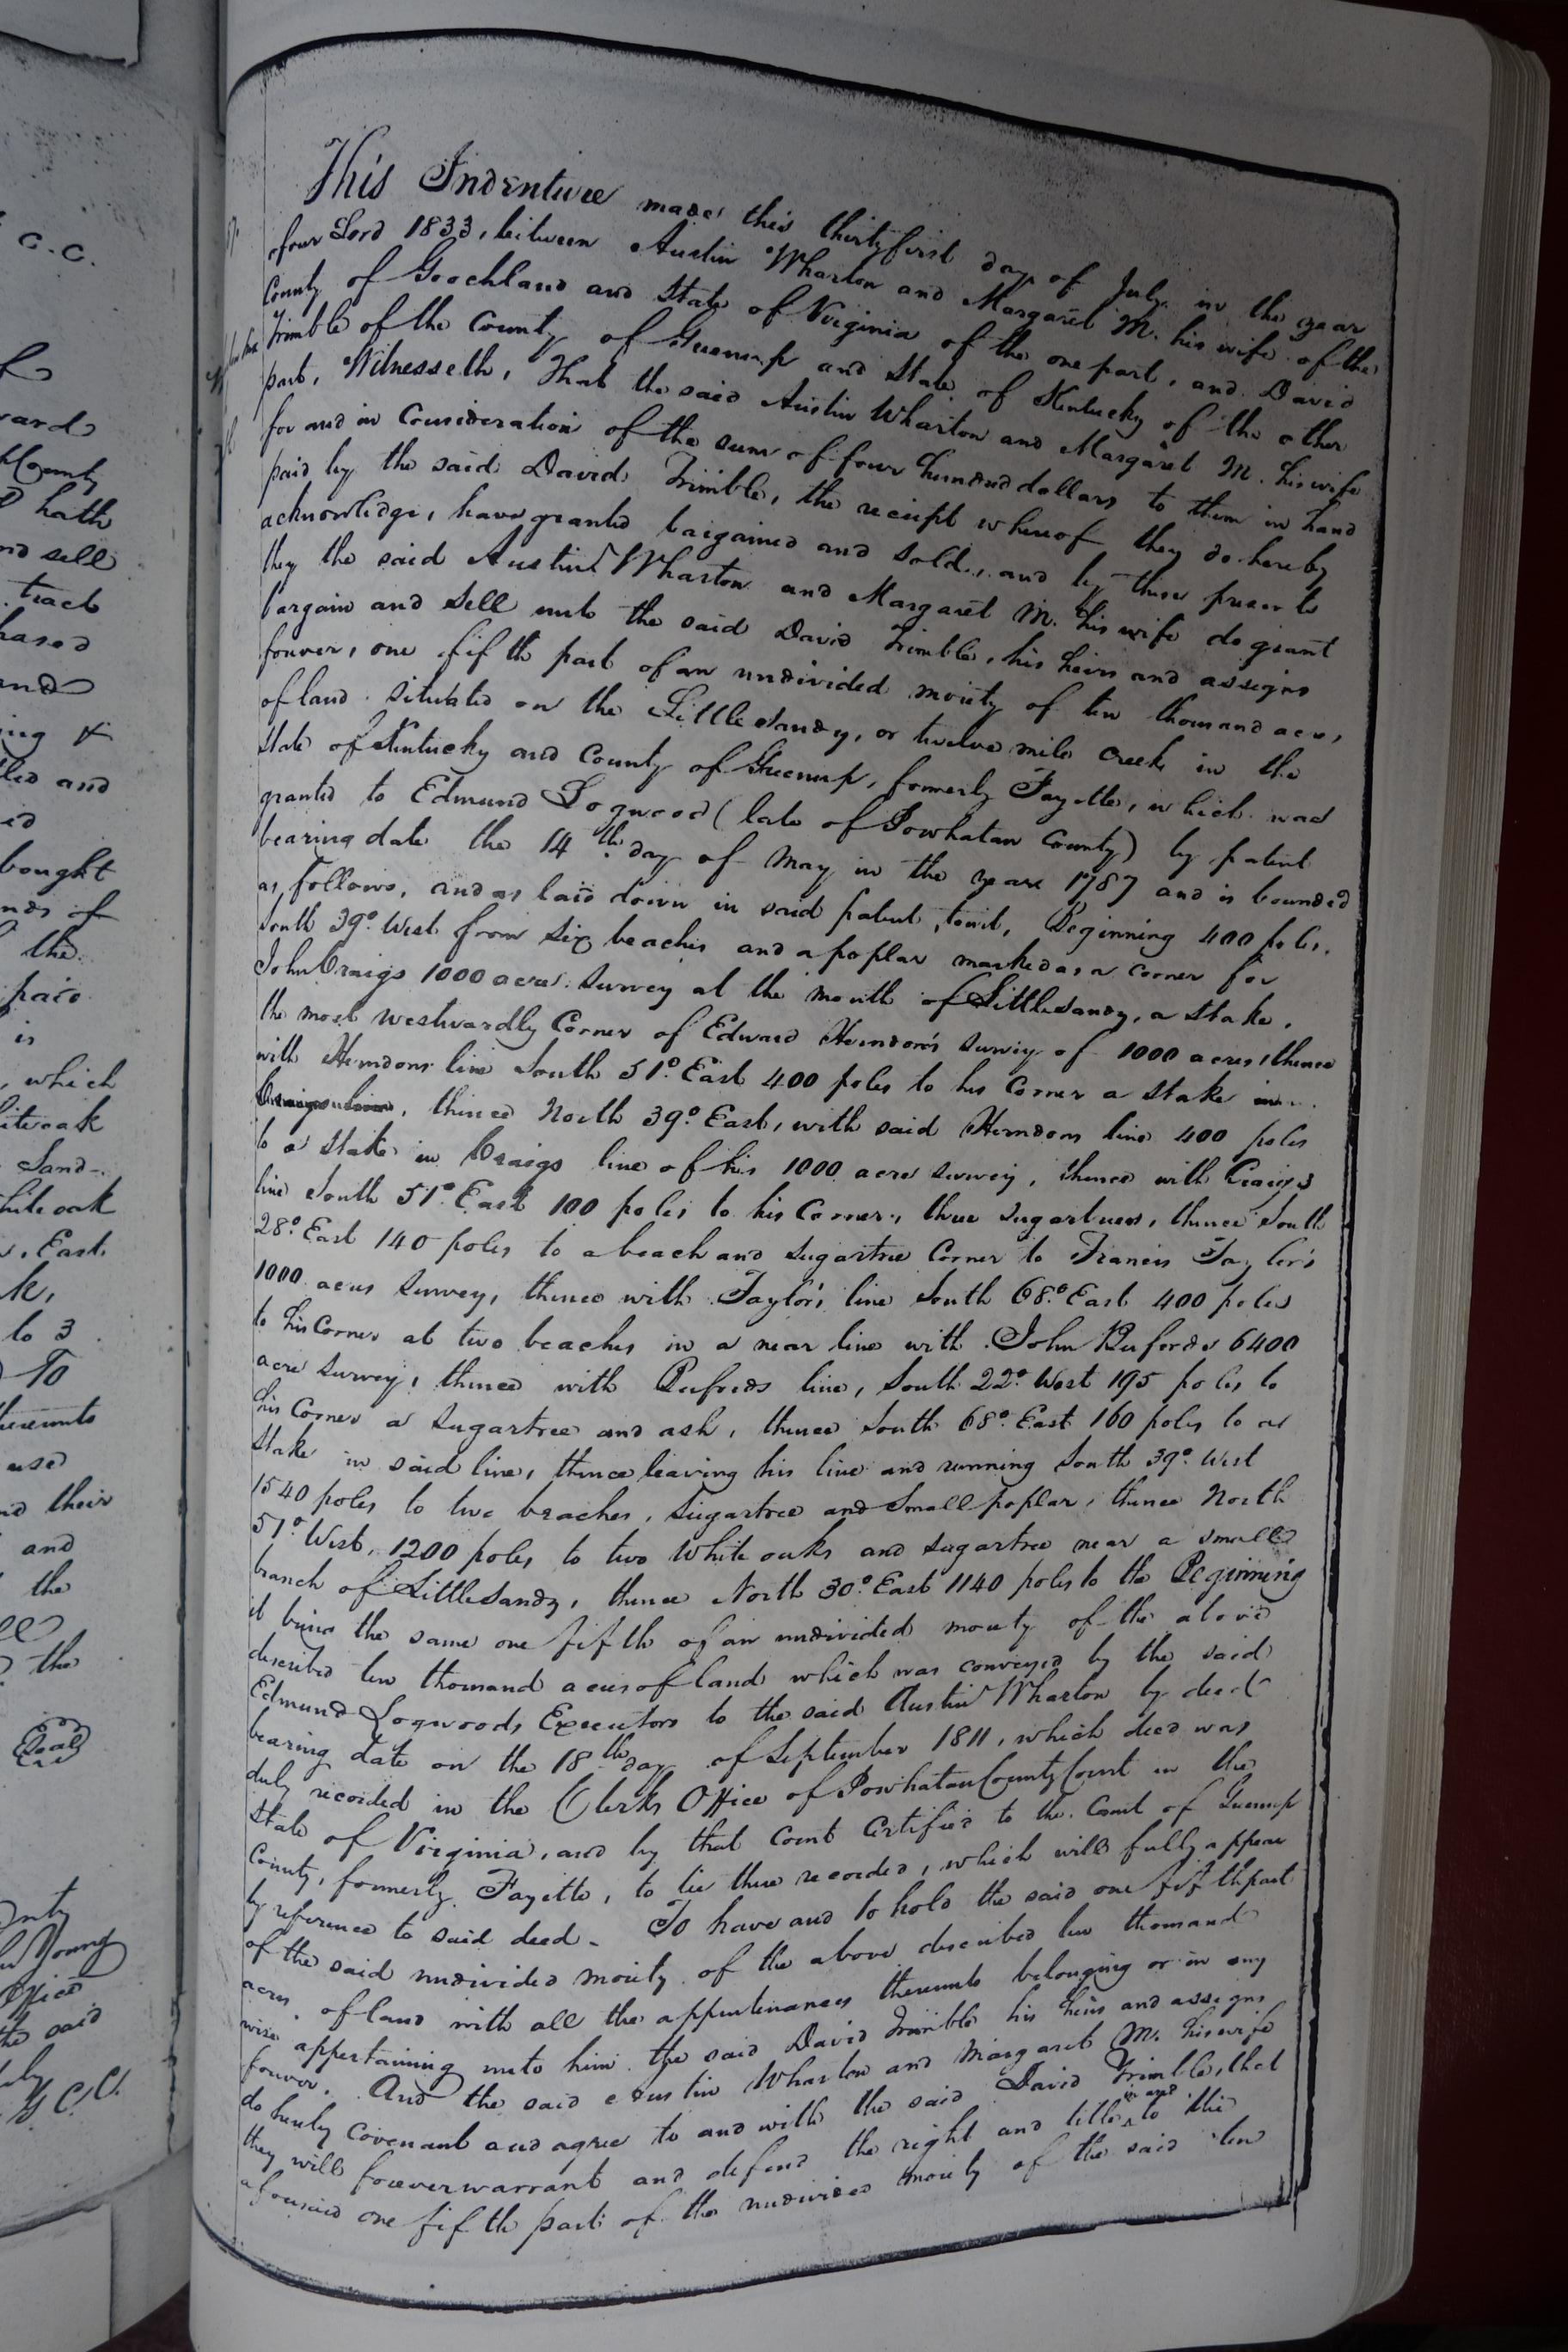 C. C.
ward
County
hath
and sell
tract
and
ing &
and
bought
of
the
paid
is
, which
Sand-
White oak
East
to 3
To
hereunto
used
and their
and
the
the
Seal
Young
Office
the said
This Indenture made this thirtyfirst day of July in the year
of our Lord 1833, between Austin Wharton and Margaret M. his wife of the
County of Goochland and State of Virginia of the one part, and David
Trimble of the County of Greenup and State of Kentucky of the other
part, Witnesseth, That the said Austin Wharton and Margaret M. his wife
for and in Consideration of the sum of four hundred dollars to them in hand
paid by the said David Trimble, the receipt whereof they do hereby
acknowledge, have granted bargained and sold, and by these presents
they the said Austin Wharton and Margaret M. his wife do grant
bargain and sell unto the said David Trimble, his heirs and assigns
forever, one fifth part of an undivided moiety of ten thousand acres,
of land situated on the Little Sandy, or twelve mile Creek in the
State of Kentucky and County of Greenup, formerly Fayette, which was
granted to Edmund Logwood (late of Powhatan County) by patent
bearing date the 14th day of May in the year 1787 and is bounded
as follows, and as laid down in said patent, towit, Beginning 400 poles.
South 39° West from six beaches and a poplar marked as a corner for
John Craigs 1000 acre survey at the mouth of Little Sandy, a stake,
the most westwardly Corner of Edward Herndon's survey of 1000 acres, thence
with Herndons line South 51° East 400 poles to his Corner a stake in
Craigs line, thence North 39° East, with said Herndons line 400 poles
to a stake in Craigs line of his 1000 acre survey, thence with Craigs
line South 51° East 100 poles to his Corner, three sugartrees, thence South
28° East 140 poles to a beach and sugartree Corner to Francis Taylor's
1000 acres survey, thence with Taylor's line South 68° East 400 poles
to his Corner at two beaches in a near line with John Bufords 6400
acre survey, thence with Bufords line, South 22° West 195 poles to
his Corner a sugartree and ash, thence South 68° East 160 poles to a
stake in said line, thence leaving his line and running South 39° West
1540 poles to two beaches, sugartree and small poplar, thence North
51° West, 1200 poles to two White oaks and sugartree near a small
branch of Little Sandy, thence North 30° East 1140 poles to the Beginning
it being the same one fifth of an undivided moiety of the above
described ten thousand acres of land which was conveyed by the said
Edmund Logwoods Executors to the said Austin Wharton by deed
bearing date on the 18th day of September 1811, which deed was
duly recorded in the Clerks Office of Powhatan County Court in the
State of Virginia, and by that Court Certified to the Court of Greenup
County, formerly Fayette, to be there recorded, which will fully appear
by reference to said deed - To have and to hold the said one fifth part
of the said undivided moiety of the above described ten thousand
acres of land with all the appurtenances thereunto belonging or in any
wise appertaining unto him the said David Trimble his heirs and assigns
forever. And the said Austin Wharton and Margaret M. his wife
do hereby Covenant and agree to and with the said David Trimble, that
they will forever warrant and defend the right and title in and to the
aforesaid one fifth part of the undivided moiety of the said ten